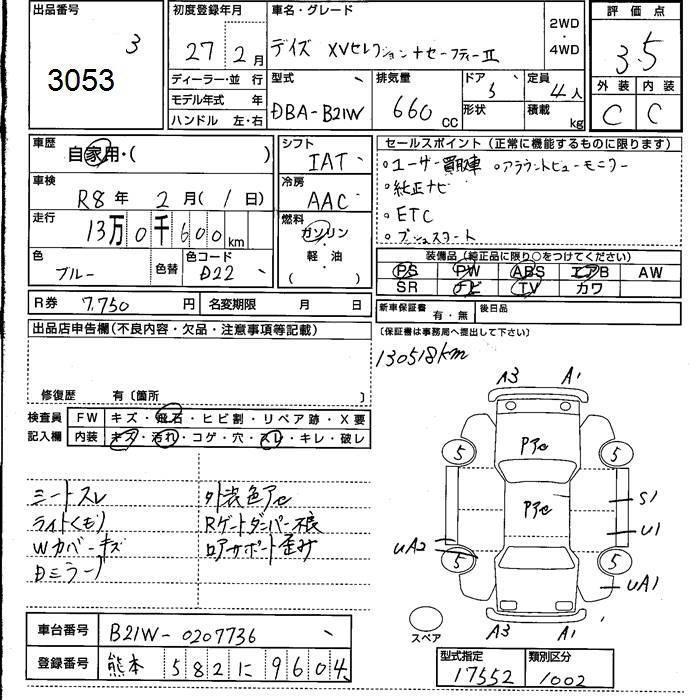 出品番号
3
3053
初度登録年月
27年2月
車名・グレード
デイズ XVセレクション+セーフティーII
2WD
・
4WD
評価点
3.5
外装 内装
C C
ディーラー・並行
モデル年式 年
ハンドル 左・右
型式
DBA-B21W
排気量
660 CC
ドア
5
形状
定員
4人
積載
kg
車歴
自家用・( )
車検
R8年 2月( 1日)
走行
13万0千600km
色
ブルー
色替
色コード
D22
シフト
IAT
冷房
AAC
燃料
ガソリン
・
軽油
( )
R券 7,750円
名変期限 月 日
セールスポイント(正常に機能するものに限ります)
○ユーザー買取車 ○アラウンドビューモニター
○純正ナビ
○ETC
○プッシュスタート
装備品(純正品に限り○をつけてください)
PS PW ABS エアB AW
SR ナビ TV カワ
新車保証書 有・無
後日品
(保証書は事務局へ提出して下さい)
出品店申告欄(不良内容・欠品・注意事項等記載)
修復歴 有〔箇所 〕
130518km
検査員
記入欄
FW キズ・飛石・ヒビ割・リペア跡・X要
内装 キズ・汚れ・コゲ・穴・スレ・キレ・破レ
シートスレ
ライトくもり
Wカバーキズ
Dミラーフ
外装色アセ
Rゲートダンパー不良
ロアサポート歪み
A3 A1
5 Pアセ 5
Pアセ
S1
U1
UA2
5 5
UA1
A3 A1
スペア
車台番号 B21W-0207736
登録番号 熊本 582 に 9604
型式指定
17552
類別区分
1002